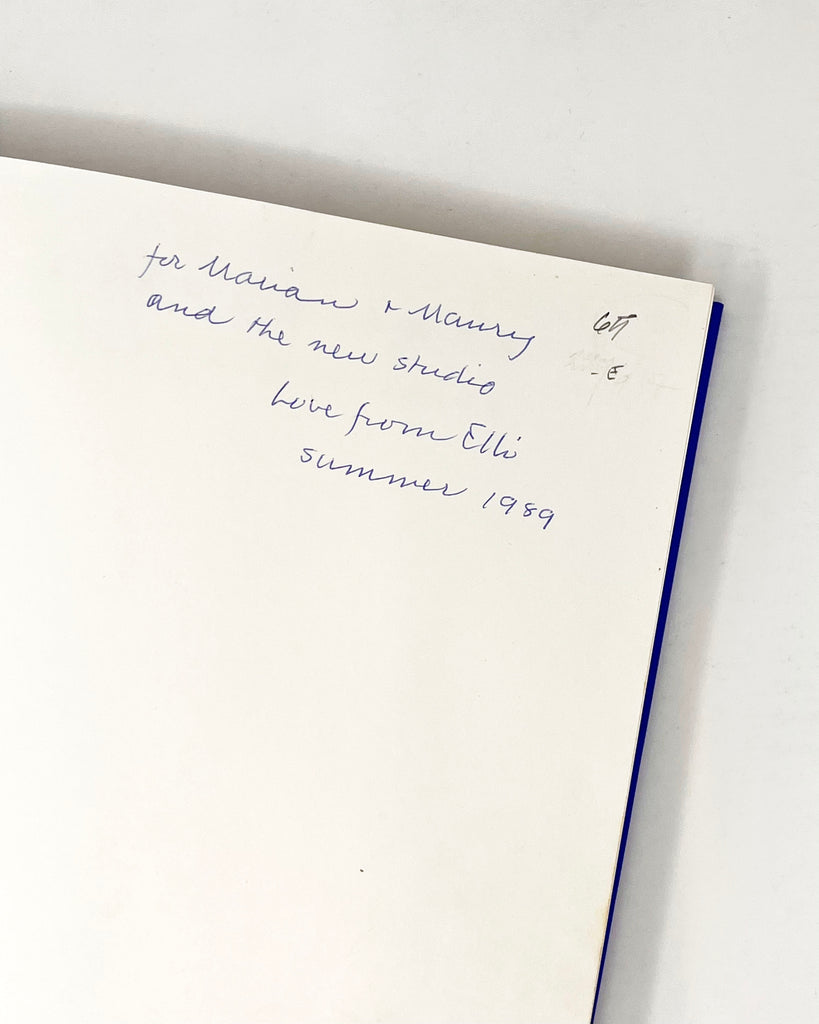 for Marian + Maury
and the new studio
Love from Elli
summer 1989
- E